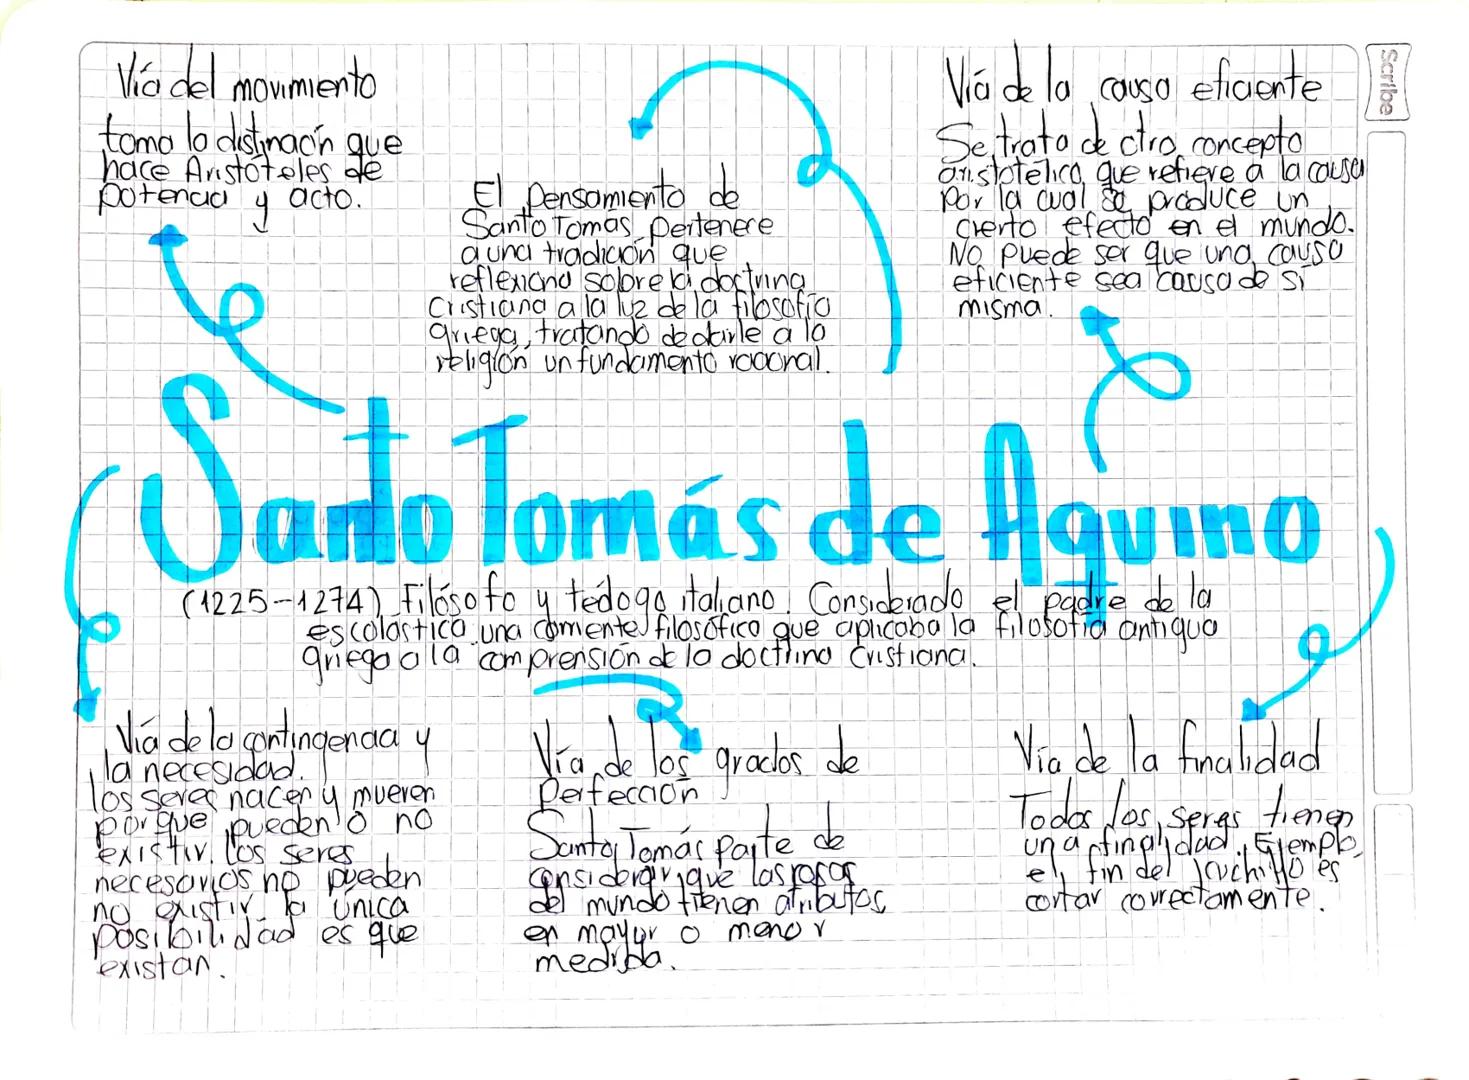 Vía del movimiento
toma la distinación que
hace Aristóteles de
potencia y acto.
El pensamiento de
Santo Tomás pertenere
a una tradición que
reflexiona sobre la doctrina
Cristiana a la luz de la filosofía
griega, tratando de darle a la
religión un fundamento racional.
Vía de la causa eficiente
Se trata de otro concepto
aristotélico que refiere a la causa
por la cual se produce un
cierto efecto en el mundo.
No puede ser que una causa
eficiente sea causa de sí
misma.
Scribe
Santo Tomás de Aquino
(1225-1274) Filósofo y teólogo italiano. Considerado el padre de la
escolástica una corriente filosófica que aplicaba la filosofía antigua
griega a la comprensión de la doctrina Cristiana.
Vía de la contingencia y
la necesidad.
los seres nacen y mueren
porque pueden o no
existir. Los seres
necesarios no pueden
no existir. la única
posibilidad es que
existan.
Vía de los grados de
Perfección
Santo Tomás parte de
considerar que las cosas
del mundo tienen atributos
en mayor o menor
medida.
Vía de la finalidad
Todos los seres tienen
una finalidad. Ejemplo,
el fin del cuchillo es
cortar correctamente.